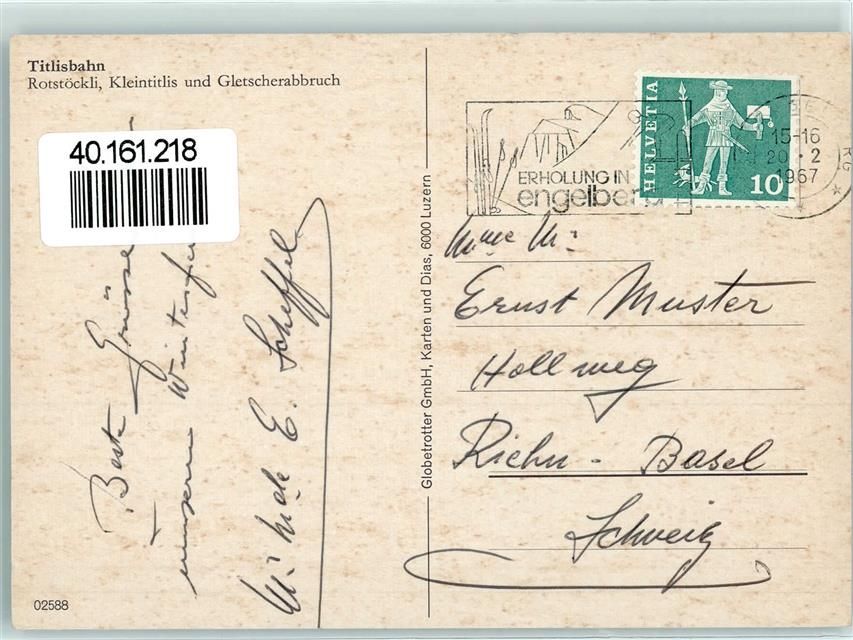 Titlisbahn
Rotstöckli, Kleintitlis und Gletscherabbruch
40.161.218
Beste Grüsse
unseren
E. Scheffel
02588
Globetrotter GmbH, Karten und Dias, 6000 Luzern
ERHOLUNG IN
engelberg
HELVETIA
10
15-16
20.2
1967
Ernst Muster
Hollweg
Riehn - Basel
Schweiz